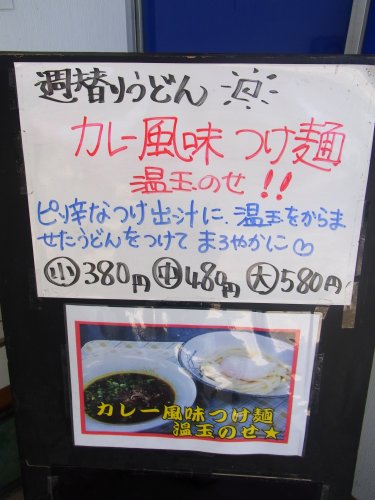 週替りうどん
カレー風味つけ麺
温玉のせ!!
ピリ辛なつけ出汁に、温玉をからま
せたうどんをつけて まろやかに♡
小380円 中480円 大580円
カレー風味つけ麺
温玉のせ★